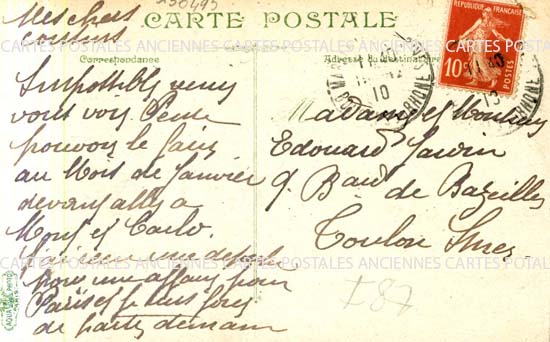 130493
CARTE POSTALE
Correspondance
Adresse du destinataire
REPUBLIQUE FRANÇAISE
10c
POSTES
RHONE
10
13
Mes chers
cousins
Impossible venir
vous voir. Pense
pouvoir le faire
au Mois de Janvier
devant aller a
Mont et Carlo.
J'ai reçu une depeche
pour une affaire pour
Paris et je suis forcé
de partir demain
Madame et Monsieur
Edouard
9 Bard de Bazeilles
Toulon
I87
CARTES POSTALES ANCIENNES CARTES POSTALES ANCIENNES CARTES POSTALES
AQUA PHOTO